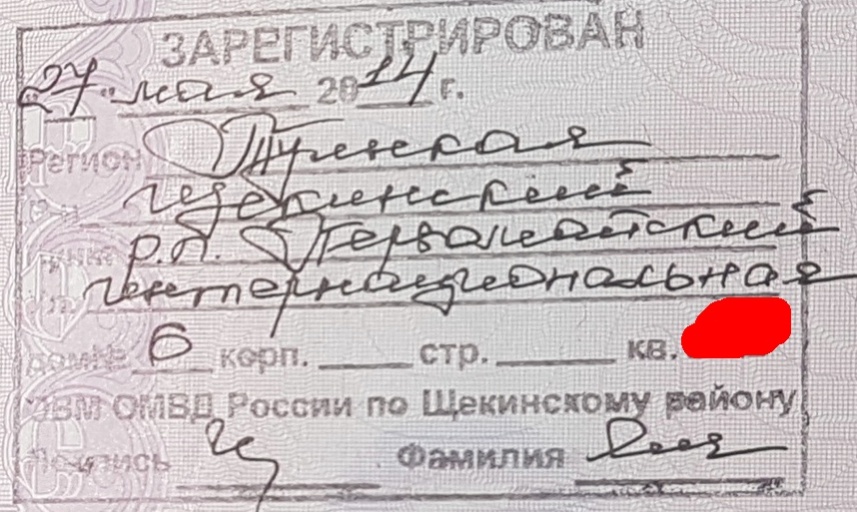 ЗАРЕГИСТРИРОВАН
"27" мая 2014 г.
Регион Тульская
Р-н Щекинский
Пункт р.п. Первомайский
Ул. Интернациональная
дом № 6 корп. стр. кв.
ОВМ ОМВД России по Щекинскому району
Подпись Фамилия